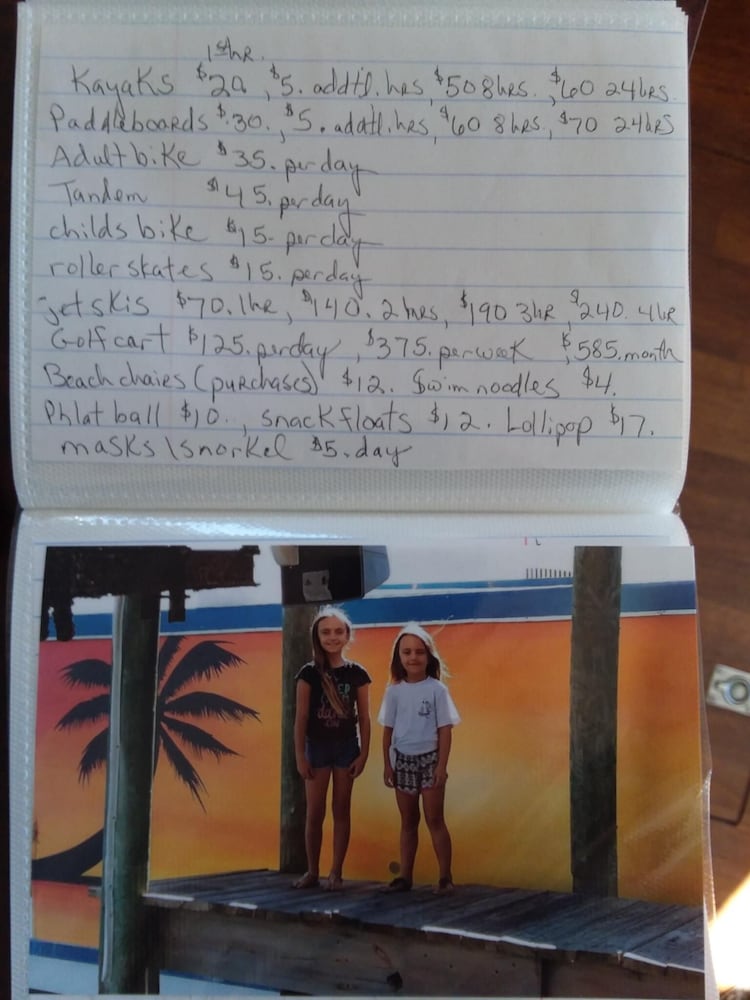 1st hR.
Kayaks $20, $5. addt'l. hrs, $50 8hrs., $60 24hrs.
Paddleboards $.30., $5. addtl. hrs, $60 8hrs., $70 24hrs
Adult bike $35. per day
Tandem $45. per day
childs bike $15- per day
roller skates $15. per day
jet skis $70. 1hr, $140. 2hrs, $190 3hR, $240. 4hR
Golf cart $125. per day, $375. per week $585. month
Beach chairs (purchases) $12. Swim noodles $4.
Phlat ball $10., snack floats $12. Lollipop $17.
masks \ snorkel $5. day